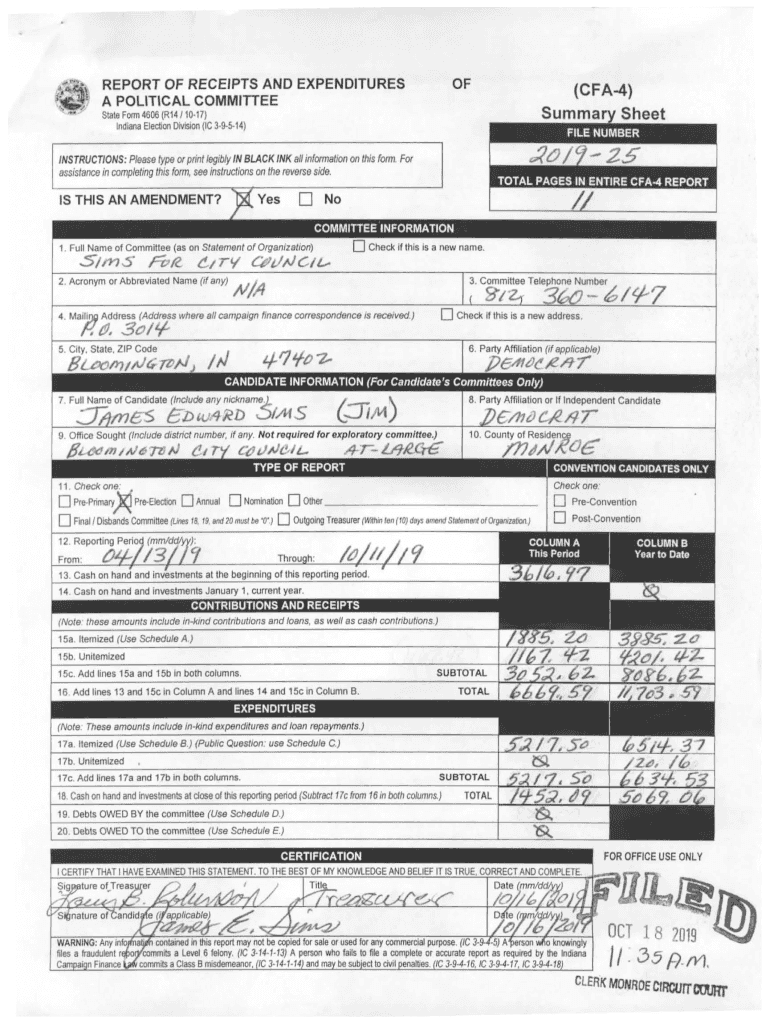 REPORT OF RECEIPTS AND EXPENDITURES OF
A POLITICAL COMMITTEE
State Form 4606 (R14 / 10-17)
Indiana Election Division (IC 3-9-5-14)
(CFA-4)
Summary Sheet
FILE NUMBER
2019-25
INSTRUCTIONS: Please type or print legibly IN BLACK INK all information on this form. For
assistance in completing this form, see instructions on the reverse side.
TOTAL PAGES IN ENTIRE CFA-4 REPORT
11
IS THIS AN AMENDMENT? Yes No
COMMITTEE INFORMATION
1. Full Name of Committee (as on Statement of Organization) Check if this is a new name.
SIMS FOR CITY COUNCIL
2. Acronym or Abbreviated Name (if any)
N/A
3. Committee Telephone Number
(812) 360-6147
4. Mailing Address (Address where all campaign finance correspondence is received.) Check if this is a new address.
P.O. 3014
5. City, State, ZIP Code
BLOOMINGTON, IN 47402
6. Party Affiliation (if applicable)
DEMOCRAT
CANDIDATE INFORMATION (For Candidate's Committees Only)
7. Full Name of Candidate (Include any nickname.)
JAMES EDWARD SIMS (JIM)
8. Party Affiliation or If Independent Candidate
DEMOCRAT
9. Office Sought (Include district number, if any. Not required for exploratory committee.)
BLOOMINGTON CITY COUNCIL AT-LARGE
10. County of Residence
MONROE
TYPE OF REPORT
CONVENTION CANDIDATES ONLY
11. Check one:
Pre-Primary Pre-Election Annual Nomination Other
Final / Disbands Committee (Lines 18, 19, and 20 must be "0".) Outgoing Treasurer (Within ten (10) days amend Statement of Organization.)
Check one:
Pre-Convention
Post-Convention
12. Reporting Period (mm/dd/yy):
From: 04/13/19 Through: 10/11/19
COLUMN A
This Period
COLUMN B
Year to Date
13. Cash on hand and investments at the beginning of this reporting period. 3616.97
14. Cash on hand and investments January 1, current year. 0
CONTRIBUTIONS AND RECEIPTS
(Note: these amounts include in-kind contributions and loans, as well as cash contributions.)
15a. Itemized (Use Schedule A.) 1885.20 3885.20
15b. Unitemized 1167.42 4201.42
15c. Add lines 15a and 15b in both columns. SUBTOTAL 3052.62 8086.62
16. Add lines 13 and 15c in Column A and lines 14 and 15c in Column B. TOTAL 6669.59 11,703.59
EXPENDITURES
(Note: These amounts include in-kind expenditures and loan repayments.)
17a. Itemized (Use Schedule B.) (Public Question: use Schedule C.) 5217.50 6514.37
17b. Unitemized 0 120.16
17c. Add lines 17a and 17b in both columns. SUBTOTAL 5217.50 6634.53
18. Cash on hand and investments at close of this reporting period (Subtract 17c from 16 in both columns.) TOTAL 1452.09 5069.06
19. Debts OWED BY the committee (Use Schedule D.) 0
20. Debts OWED TO the committee (Use Schedule E.) 0
CERTIFICATION
FOR OFFICE USE ONLY
I CERTIFY THAT I HAVE EXAMINED THIS STATEMENT. TO THE BEST OF MY KNOWLEDGE AND BELIEF IT IS TRUE, CORRECT AND COMPLETE.
Signature of Treasurer Title Date (mm/dd/yy)
B. Robinson Treasurer 10/16/2019
Signature of Candidate (if applicable) Date (mm/dd/yy)
James E. Sims 10/16/2019
WARNING: Any information contained in this report may not be copied for sale or used for any commercial purpose. (IC 3-9-4-5) A person who knowingly
files a fraudulent report commits a Level 6 felony. (IC 3-14-1-13) A person who fails to file a complete or accurate report as required by the Indiana
Campaign Finance Law commits a Class B misdemeanor, (IC 3-14-1-14) and may be subject to civil penalties. (IC 3-9-4-16, IC 3-9-4-17, IC 3-9-4-18)
FILED
OCT 18 2019
11:35 A.M.
CLERK MONROE CIRCUIT COURT